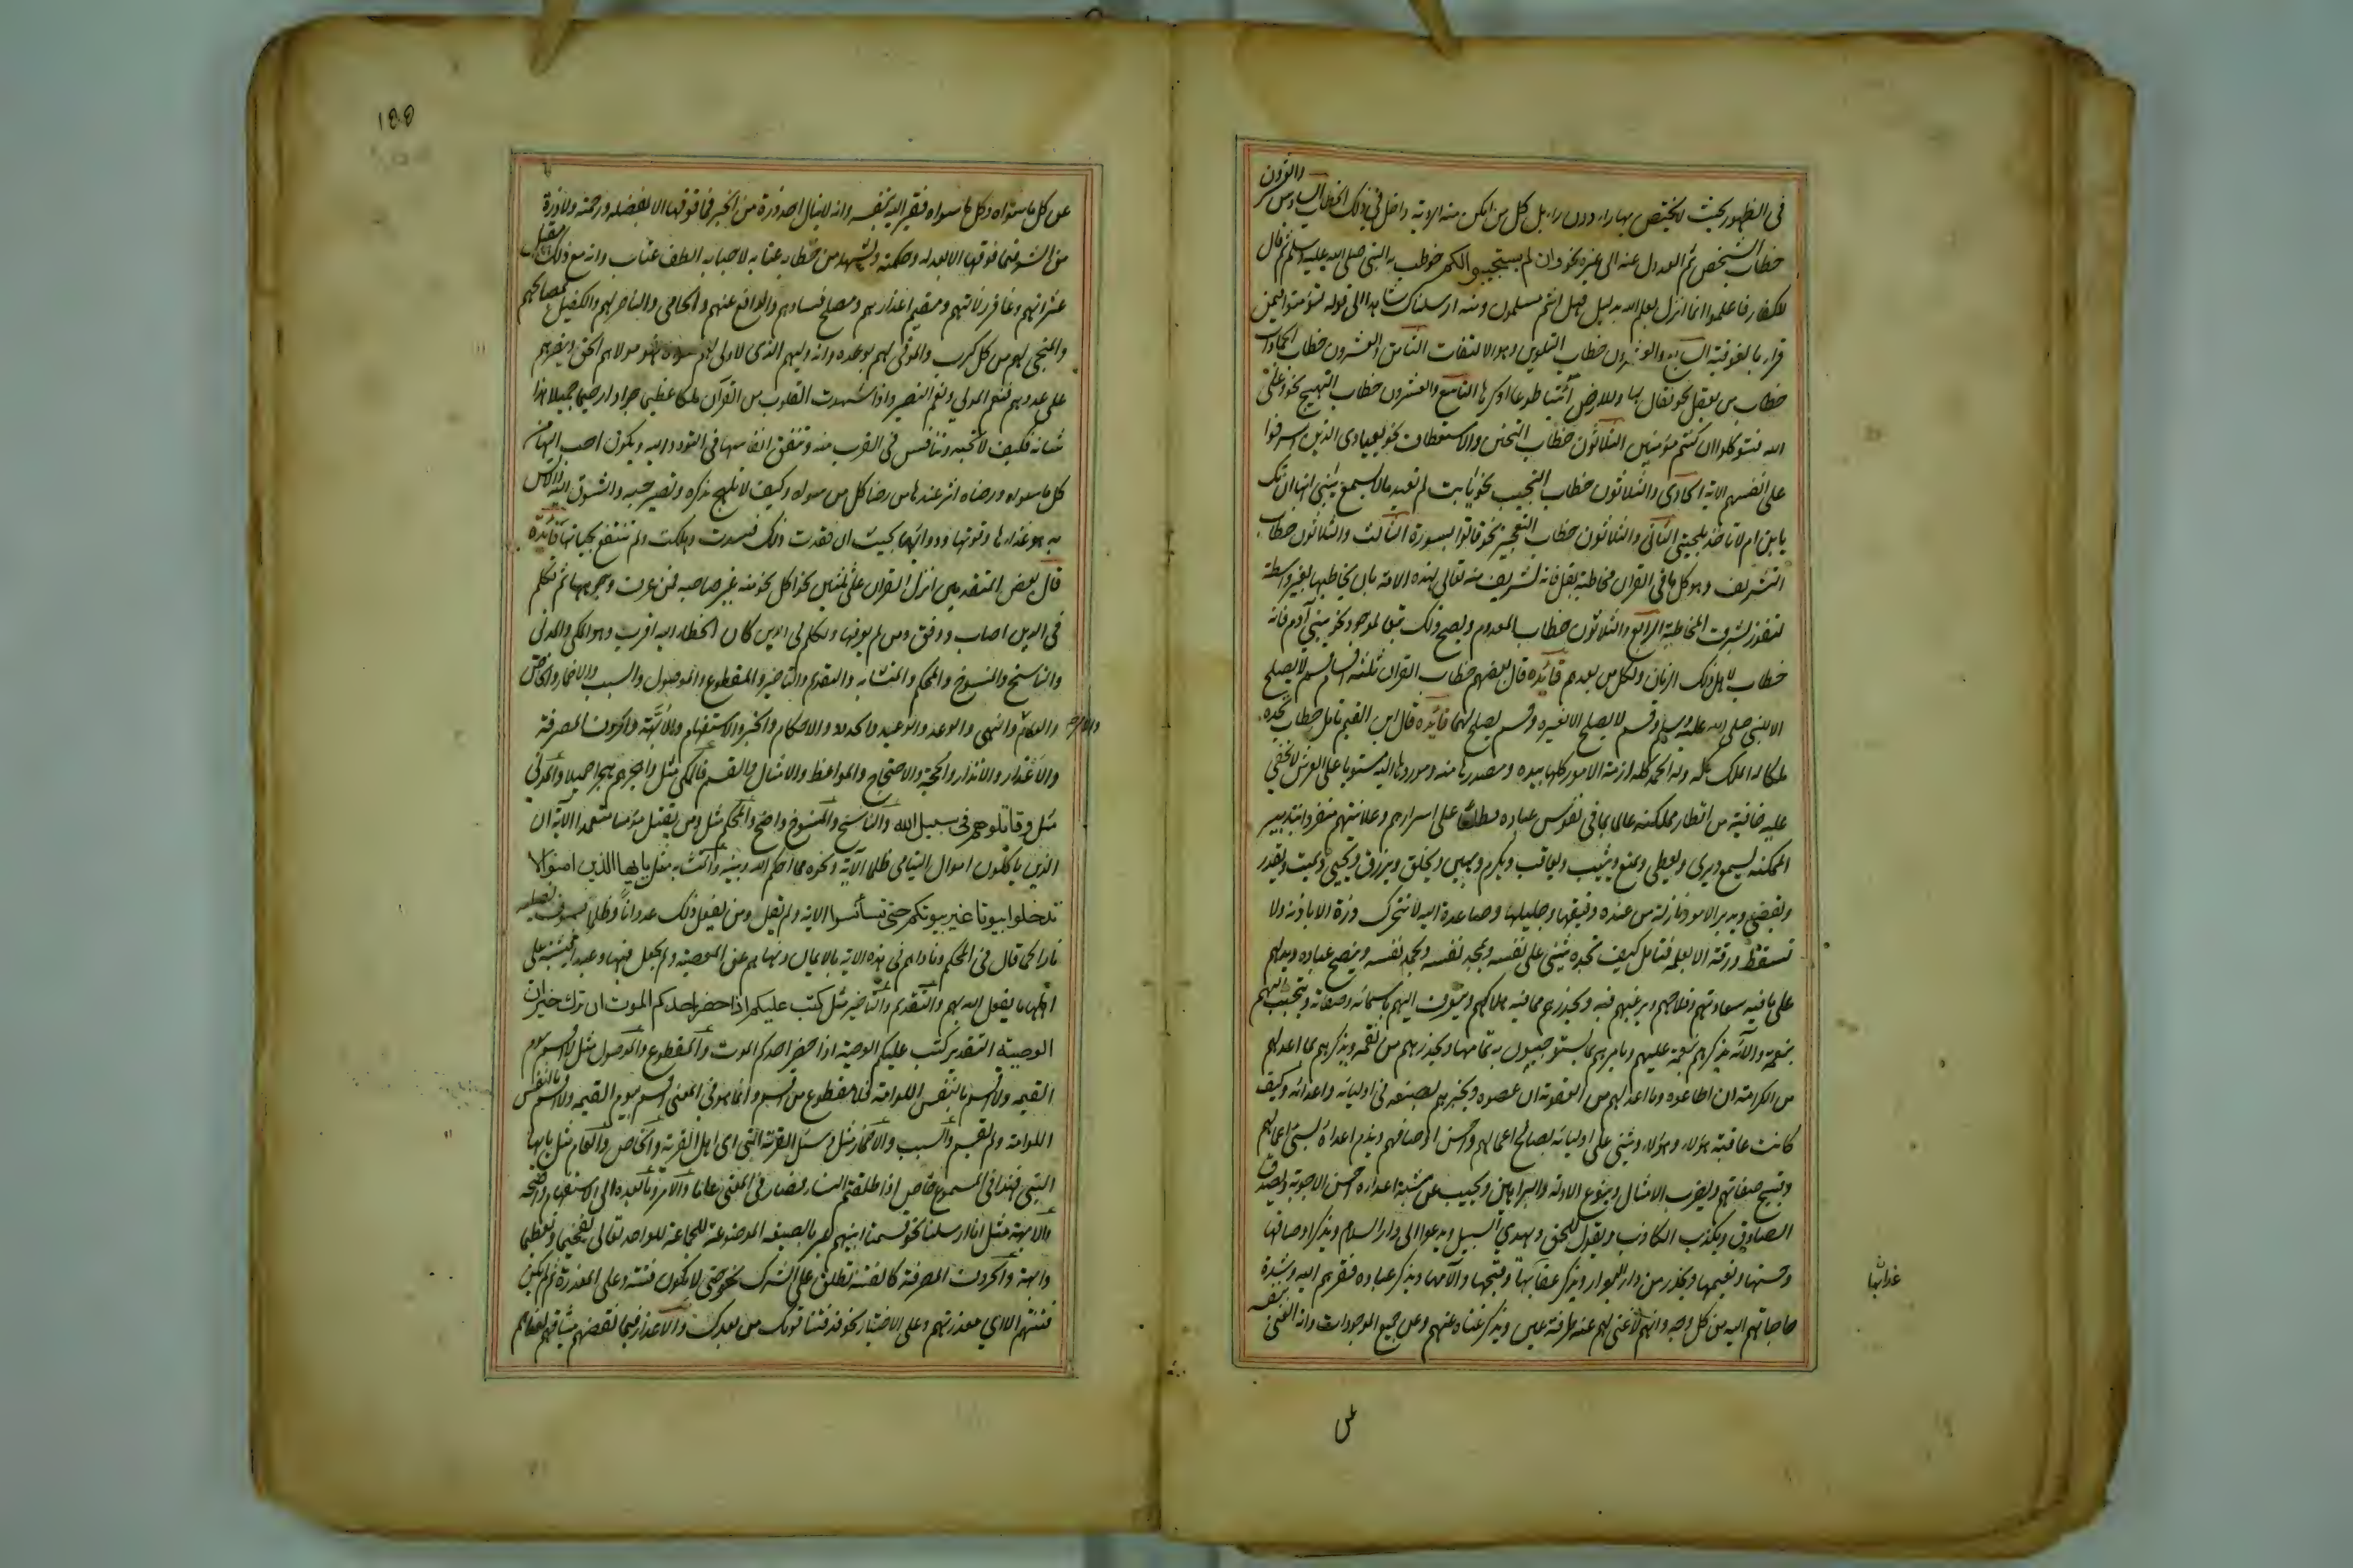 والعشرون
في الظهور بحيث لا يختص بها راء دون راء بل كل من امكن منه الروية داخل في ذلك الخطاب السادس
خطاب الشخص ثم العدول عنه الى غيره نحو وان لم يستجيبوا لكم خوطب به النبي صلى الله عليه وسلم ثم قال
للكفار فاعلموا انما انزل بعلم الله بدليل فهل انتم مسلمون ومنه ارسلناك شاهدا الى قوله لتؤمنوا فيمن
قراء بالفوقية السابع والعشرون خطاب التلوين وهو الالتفات الثامن والعشرون خطاب الجمادات
خطاب من يعقل نحو فقال لها وللارض ائتيا طوعا او كرها التاسع والعشرون خطاب التهييج نحو وعلى
الله فتوكلوا ان كنتم مؤمنين الثلاثون خطاب التحنن والاستعطاف نحو يعبادى الذين اسرفوا
على انفسهم الاية الحادى والثلاثون خطاب التحبيب نحو يا ابت لم تعبد ما لا يسمع يا بنى انها ان تك
يا بن ام لا تاخذ بلحيتى الثانى والثلاثون خطاب التعجيز نحو فاتوا بسورة الثالث والثلاثون خطاب
التشريف وهو كل ما فى القران مخاطبة بقل فانه تشريف منه تعالى لهذه الامة بان يخاطبها بغير واسطة
لتفوز بشرف المخاطبة الرابع والثلاثون خطاب المعدوم ويصح ذلك تبعا لموجود نحو يبنى آدم فانه
خطاب لاهل ذلك الزمان ولكل من بعدهم فائدة قال بعضهم خطاب القران ثلثة اقسام قسم لا يصلح
الا للنبى صلى الله عليه وسلم وقسم لا يصلح الا لغيره وقسم يصلح لهما فائدة قال ابن القيم تامل خطاب تجده
ملكا له الملك كله وله الحمد كله ازمة الامور كلها بيده ومصدرها منه وموردها اليه مستويا على العرش لا تخفى
عليه خافية من اقطار مملكته عالما بما فى نفوس عباده مطلعا على اسرارهم وعلانيتهم منفردا بتدبير
المملكة يسمع ويرى ويعطى ويمنع ويثيب ويعاقب ويكرم ويهين ويخلق ويرزق ويحيى ويميت ويقدر
ويقضى ويدبر الامور نازلة من عنده دقيقها وجليلها وصاعدة اليه لا تتحرك ذرة الا باذنه ولا
تسقط ورقة الا بعلمه فتامل كيف تجده يثنى على نفسه ويمجد نفسه ويحمد نفسه وينصح عباده ويدلهم
على ما فيه سعادتهم وفلاحهم ويرغبهم فيه ويحذرهم مما فيه هلاكهم ويتعرف اليهم باسمائه وصفاته ويتحبب اليهم
بنعمه وآلائه يذكرهم بنعمه عليهم ويامرهم بما يستوجبون به تمامها ويحذرهم من نقمه ويذكرهم بما اعد لهم
من الكرامة ان اطاعوه وما اعد لهم من العقوبة ان عصوه ويخبرهم بصنعه فى اوليائه واعدائه وكيف
كانت عاقبة هؤلاء وهؤلاء ويثنى على اوليائه بصالح اعمالهم واحسن اوصافهم ويذم اعداءه بسئ اعمالهم
وقبيح صفاتهم ويضرب الامثال وينوع الادلة والبراهين ويجيب عن شبه اعدائه احسن الاجوبة ويصدق
الصادق ويكذب الكاذب ويقول الحق ويهدى السبيل ويدعوا الى دار السلام ويذكر اوصافها
وحسنها ونعيمها ويحذر من دار البوار ويذكر عذابها وقبحها وآلامها ويذكر عباده فقرهم اليه وشدة
عذابها
حاجاتهم اليه من كل وجه وانهم لا غنى لهم عنه طرفة عين ويذكر غناه عنهم وعن جميع الموجودات وانه الغنى بنفسه
عن
١٥٥
عن كل ما سواه وكل ما سواه فقير اليه بنفسه وانه لا ينال احد ذرة من الخير فما فوقها الا بفضله ورحمته ولا ذرة
من الشر فما فوقها الا بعدله وحكمته وتشهد من خطابه عتابه لاحبابه الطف عتاب وانه مع ذلك مقيل
عثراتهم وغافر زلاتهم ومقيم اعذارهم ومصلح فسادهم والدافع عنهم والحامى والناصر لهم والكفيل بمصالحهم
والمنجى لهم من كل كرب والموفى لهم بوعده وانه وليهم الذى لا ولى لهم سواه فهو مولاهم الحق وينصرهم
على عدوهم فنعم المولى ونعم النصير واذا شهدت القلوب من القرآن ملكا عظيما جوادا رحيما جميلا هذا
شانه فكيف لا تحبه وتنافس فى القرب منه وتنفق انفاسها فى التودد اليه ويكون احب اليها من
كل ما سواه ورضاه اثر عندها من رضا كل من سواه وكيف لا تلهج بذكره وتصير حبه والشوق اليه والانس
به هو غذاءها وقوتها ودواءها بحيث ان فقدت ذلك فسدت وهلكت ولم تنتفع بحياتها فائدة
قال بعض المتقدمين انزل القران على ثلثين نحوا كل نحو منه غير صاحبه فمن عرف وجوهها ثم تكلم
فى الدين اصاب ووفق ومن لم يعرفها وتكلم فى الدين كان الخطاء اليه اقرب وهو المكى والمدنى
والناسخ والمنسوخ والمحكم والمتشابه والتقديم والتاخير والمقطوع والموصول والسبب والاضمار والخاص
والعام والنهى والوعد والوعيد والحدود والاحكام والخبر والاستفهام والابهة والحروف المصرفة
والامر
والاعذار والانذار والحجة والاحتجاج والمواعظ والامثال والقسم فالمكى مثل واهجرهم هجرا جميلا والمدنى
مثل وقاتلوهم فى سبيل الله والناسخ والمنسوخ واضح والمحكم مثل ومن يقتل مؤمنا متعمدا الاية ان
الذين ياكلون اموال اليتامى ظلما الآية ونحوه مما احكمه الله وبينه والمتشابه مثل يا ايها الذين امنوا لا
تدخلوا بيوتا غير بيوتكم حتى تستأنسوا الاية ولم يقل ومن يفعل ذلك عدوانا وظلما فسوف نصليه
نارا كما قال فى المحكم وناداهم فى هذه الاية بالايمان ونهاهم عن المعصية ولم يجعل فيها وعيدا فاشتبه على
اهلها ما يفعل الله بهم والتقديم والتاخير مثل كتب عليكم اذا حضر احدكم الموت ان ترك خيرا
الوصية التقدير كتب عليكم الوصية اذا حضر احدكم الموت والمقطوع والموصول مثل لا اقسم بيوم
القيمة ولا اقسم بالنفس اللوامة فلا مقطوع من اقسم وانما هو فى المعنى اقسم بيوم القيمة ولا اقسم بالنفس
اللوامة ولم يقسم والسبب والاضمار مثل وسئل القرية التى اى اهل القرية والخاص والعام مثل يا ايها
النبى فهذا فى المسموع خاص اذا طلقتم النساء فصار فى المعنى عاما والامر وما بعده الى الاستفهام واضحة
والابهة مثل انا ارسلنا نحن قسمنا بينهم عبر بالصيغة الموضوعة للجماعة للواحد تعالى تفخيما وتعظيما
وابهة والحروف المصرفة كالفتنة تطلق على الشرك نحو حتى لا تكون فتنة وعلى المعذرة ثم لم تكن
فتنتهم الا اى معذرتهم وعلى الاختبار نحو قد فتنا قومك من بعدك والاعذار فبما نقضهم ميثاقهم لعناهم